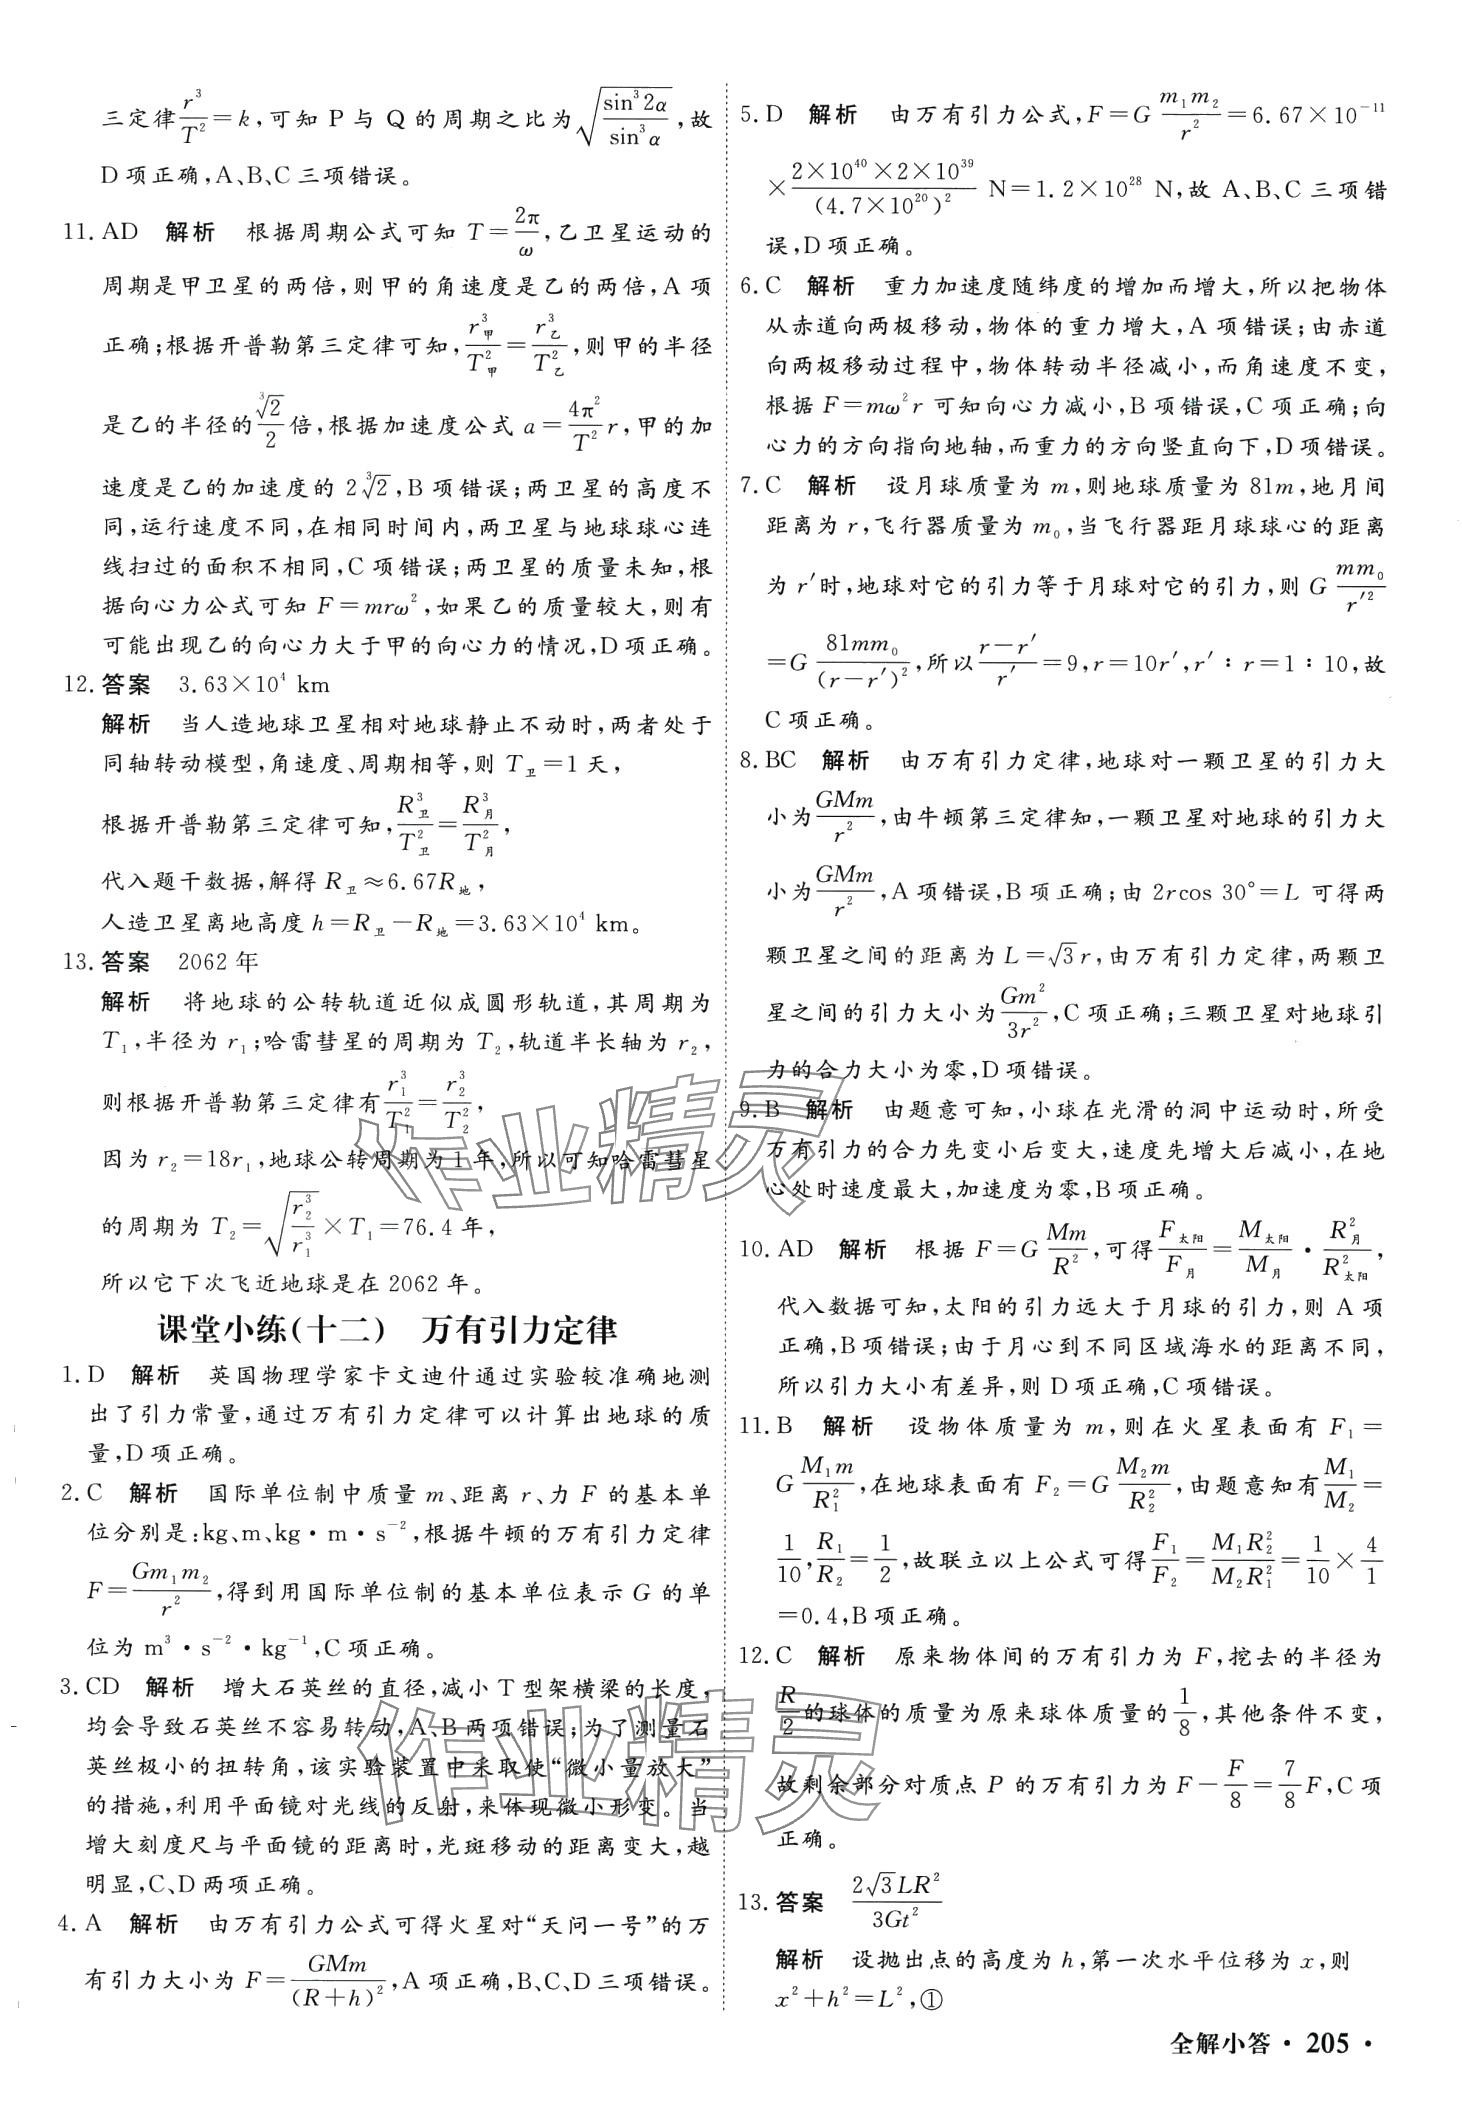 三定律r³/T²=k,可知 P 与 Q 的周期之比为√(sin³2α/sin³α),故
D 项正确,A、B、C 三项错误。
11. AD 解析 根据周期公式可知 T=2π/ω,乙卫星运动的
周期是甲卫星的两倍,则甲的角速度是乙的两倍,A 项
正确;根据开普勒第三定律可知,r³甲/T²甲=r³乙/T²乙,则甲的半径
是乙的半径的∛2/2倍,根据加速度公式 a=4π²/T² r,甲的加
速度是乙的加速度的 2∛2,B 项错误;两卫星的高度不
同,运行速度不同,在相同时间内,两卫星与地球球心连
线扫过的面积不相同,C 项错误;两卫星的质量未知,根
据向心力公式可知 F=mrω²,如果乙的质量较大,则有
可能出现乙的向心力大于甲的向心力的情况,D 项正确。
12. 答案 3.63×10⁴ km
解析 当人造地球卫星相对地球静止不动时,两者处于
同轴转动模型,角速度、周期相等,则 T卫=1 天,
根据开普勒第三定律可知,R³卫/T²卫=R³月/T²月,
代入题干数据,解得 R卫≈6.67R地,
人造卫星离地高度 h=R卫-R地=3.63×10⁴ km。
13. 答案 2062 年
解析 将地球的公转轨道近似成圆形轨道,其周期为
T₁,半径为 r₁;哈雷彗星的周期为 T₂,轨道半长轴为 r₂,
则根据开普勒第三定律有r₁³/T₁²=r₂³/T₂²,
因为 r₂=18r₁,地球公转周期为 1 年,所以可知哈雷彗星
的周期为 T₂=√(r₂³/r₁³)×T₁=76.4 年,
所以它下次飞近地球是在 2062 年。
课堂小练(十二) 万有引力定律
1. D 解析 英国物理学家卡文迪什通过实验较准确地测
出了引力常量,通过万有引力定律可以计算出地球的质
量,D 项正确。
2. C 解析 国际单位制中质量 m、距离 r、力 F 的基本单
位分别是:kg、m、kg·m·s⁻²,根据牛顿的万有引力定律
F=Gm₁m₂/r²,得到用国际单位制的基本单位表示 G 的单
位为 m³·s⁻²·kg⁻¹,C 项正确。
3. CD 解析 增大石英丝的直径,减小 T 型架横梁的长度,
均会导致石英丝不容易转动,A、B 两项错误;为了测量石
英丝极小的扭转角,该实验装置中采取使“微小量放大”
的措施,利用平面镜对光线的反射,来体现微小形变。当
增大刻度尺与平面镜的距离时,光斑移动的距离变大,越
明显,C、D 两项正确。
4. A 解析 由万有引力公式可得火星对“天问一号”的万
有引力大小为 F=GMm/(R+h)²,A 项正确,B、C、D 三项错误。
5. D 解析 由万有引力公式,F=G m₁m₂/r²=6.67×10⁻¹¹
×(2×10⁴⁰×2×10³⁹)/(4.7×10²⁰)² N=1.2×10²⁸ N,故 A、B、C 三项错
误,D 项正确。
6. C 解析 重力加速度随纬度的增加而增大,所以把物体
从赤道向两极移动,物体的重力增大,A 项错误;由赤道
向两极移动过程中,物体转动半径减小,而角速度不变,
根据 F=mω²r 可知向心力减小,B 项错误,C 项正确;向
心力的方向指向地轴,而重力的方向竖直向下,D 项错误。
7. C 解析 设月球质量为 m,则地球质量为 81m,地月间
距离为 r,飞行器质量为 m₀,当飞行器距月球球心的距离
为 r′时,地球对它的引力等于月球对它的引力,则 G mm₀/r′²
=G 81mm₀/(r-r′)²,所以(r-r′)/r′=9,r=10r′,r′∶r=1∶10,故
C 项正确。
8. BC 解析 由万有引力定律,地球对一颗卫星的引力大
小为GMm/r²,由牛顿第三定律知,一颗卫星对地球的引力大
小为GMm/r²,A 项错误,B 项正确;由 2rcos 30°=L 可得两
颗卫星之间的距离为 L=√3r,由万有引力定律,两颗卫
星之间的引力大小为Gm²/3r²,C 项正确;三颗卫星对地球引
力的合力大小为零,D 项错误。
9. B 解析 由题意可知,小球在光滑的洞中运动时,所受
万有引力的合力先变小后变大,速度先增大后减小,在地
心处时速度最大,加速度为零,B 项正确。
10. AD 解析 根据 F=G Mm/R²,可得F太阳/F月=M太阳/M月·R²月/R²太阳,
代入数据可知,太阳的引力远大于月球的引力,则 A 项
正确,B 项错误;由于月心到不同区域海水的距离不同,
所以引力大小有差异,则 D 项正确,C 项错误。
11. B 解析 设物体质量为 m,则在火星表面有 F₁=
G M₁m/R₁²,在地球表面有 F₂=G M₂m/R₂²,由题意知有M₁/M₂=
1/10,R₁/R₂=1/2,故联立以上公式可得F₁/F₂=M₁R₂²/M₂R₁²=1/10×4/1
=0.4,B 项正确。
12. C 解析 原来物体间的万有引力为 F,挖去的半径为
R/2的球体的质量为原来球体质量的1/8,其他条件不变,
故剩余部分对质点 P 的万有引力为 F-F/8=7/8F,C 项
正确。
13. 答案 2√3LR²/3Gt²
解析 设抛出点的高度为 h,第一次水平位移为 x,则
x²+h²=L²,①
作业精灵
作业精灵
全解小答·205·